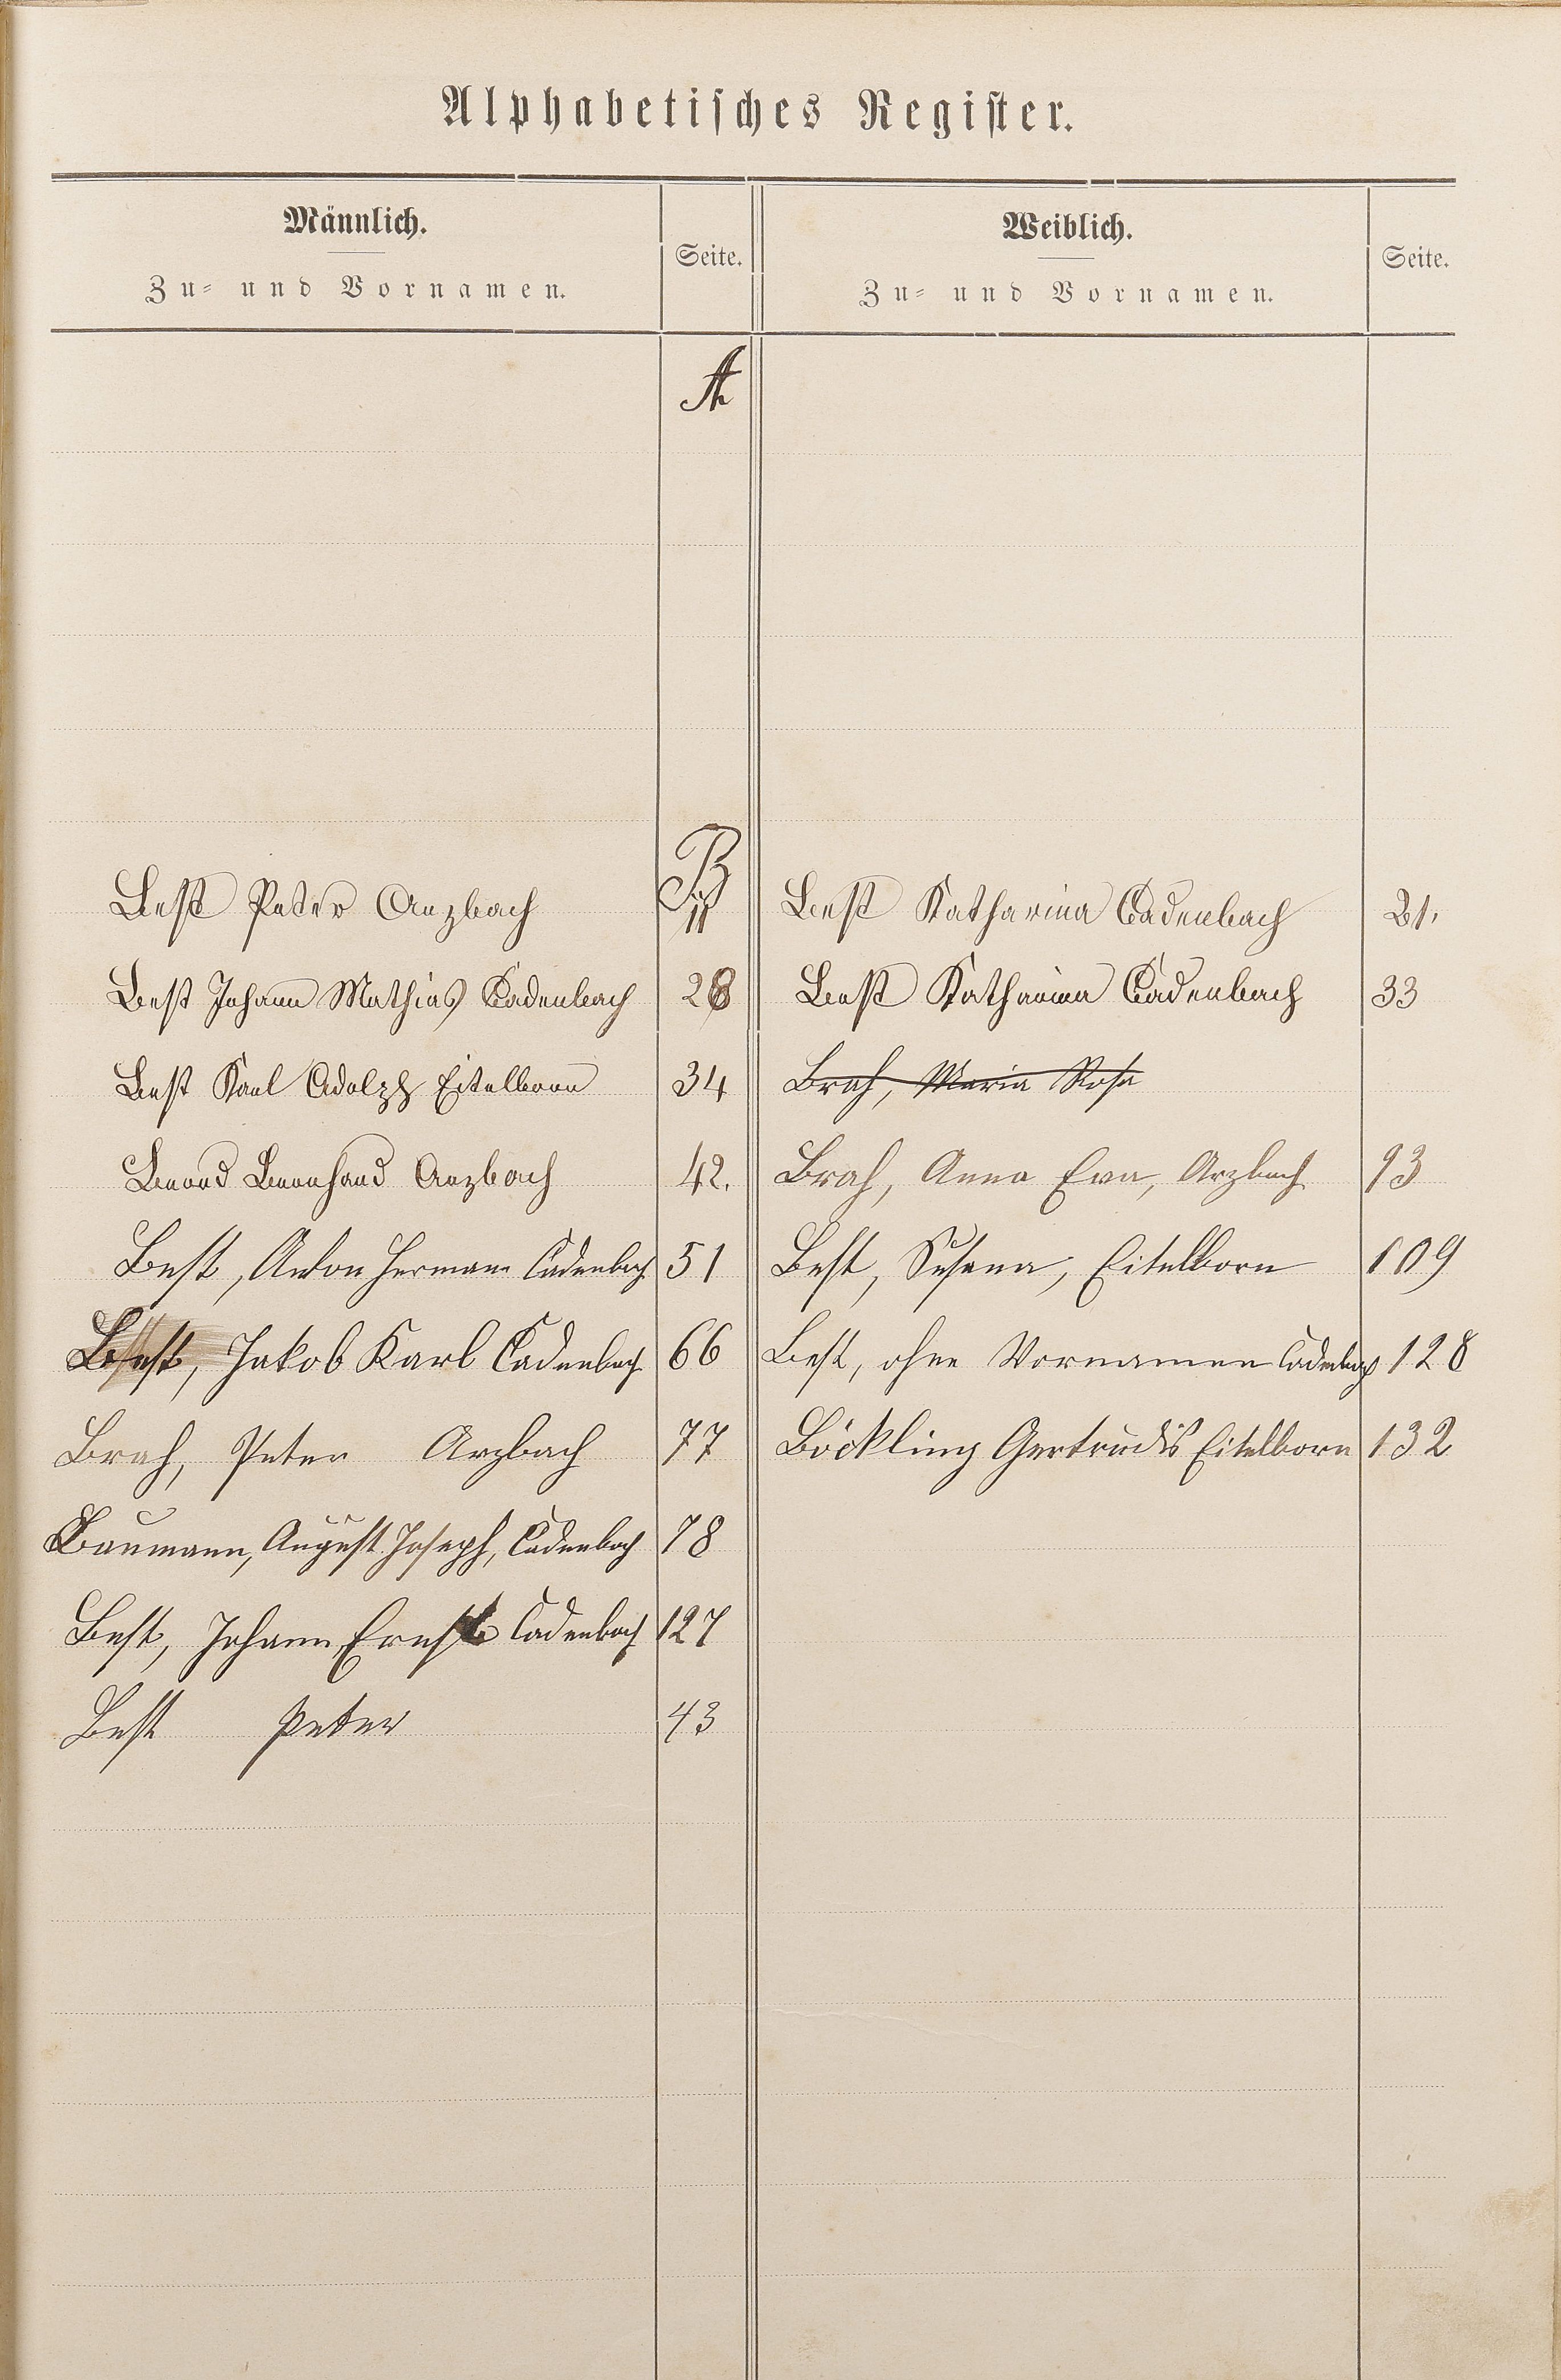 Alphabetisches Register.
Männlich.
Zu- und Vornamen.
Seite.
Weiblich.
Zu- und Vornamen.
Seite.
A
B
Best Peter Arzbach 11
Best Katharina Cadenbach 21,
Best Johann Mathias Cadenbach 28
Best Katharina Cadenbach 33
Best Karl Adolph Eitelborn 34
Brah, Maria Rosa
Bernhard Arzbach 42.
Brah, Anna Eva, Arzbach 93
Best, Anton Hermann Cadenbach 51
Best, Susana, Eitelborn 109
Best, Jakob Karl Cadenbach 66
Best, ohne Vornamen Cadenbach 128
Brah, Peter Arzbach 77
Böckling Gertrudis Eitelborn 132
Baumann, August Joseph, Cadenbach 78
Best, Johann Ernst Cadenbach 127
Best Peter 43